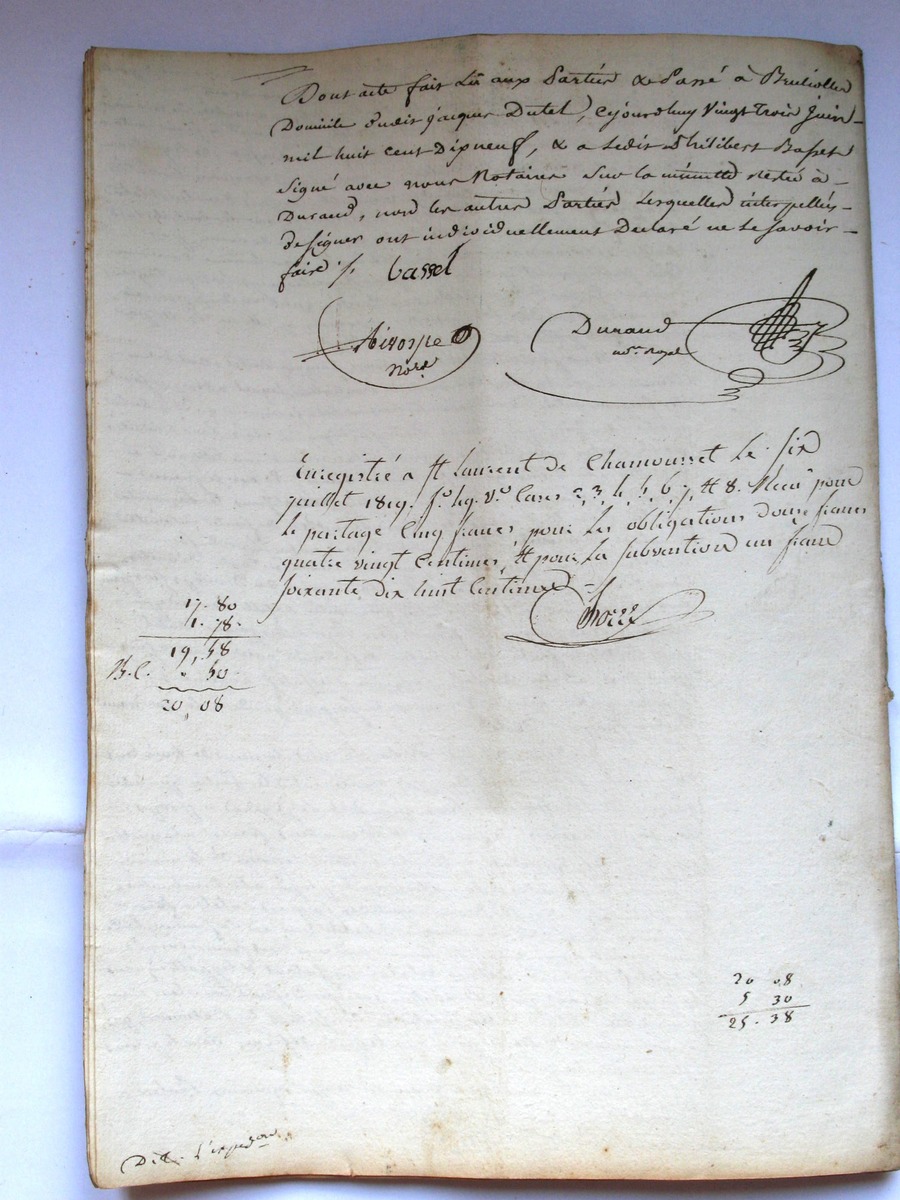 Dont acte fait Lû aux Parties & Passé à Brulioles
Domicile dudit jacques Dutel, cejourdhuy Vingt Trois Juin
mil huit cent Dix neuf, & a Ledit Philibert Basset
signé avec nous Notaires sur la minutte restée à
Durand, non les autres Parties Lesquelles interpellés
de signer ont individuellement Declaré ne Le Savoir
faire ./. basset
Durand
no.re royal
Nore
Enregistré a St Laurent de Chamousset Le Six
juillet 1819. fo. 49. Vo. Cases 2, 3, 4, 5, 6, 7, et 8. Recû pour
Le partage Cinq francs, pour Les obligations douze francs
quatre vingt Centimes, et pour La subvention un franc
soixante dix huit Centimes
17. 80
1. 78.
19, 58
R.C. " 50
20, 08
20 08
5 30
25. 38